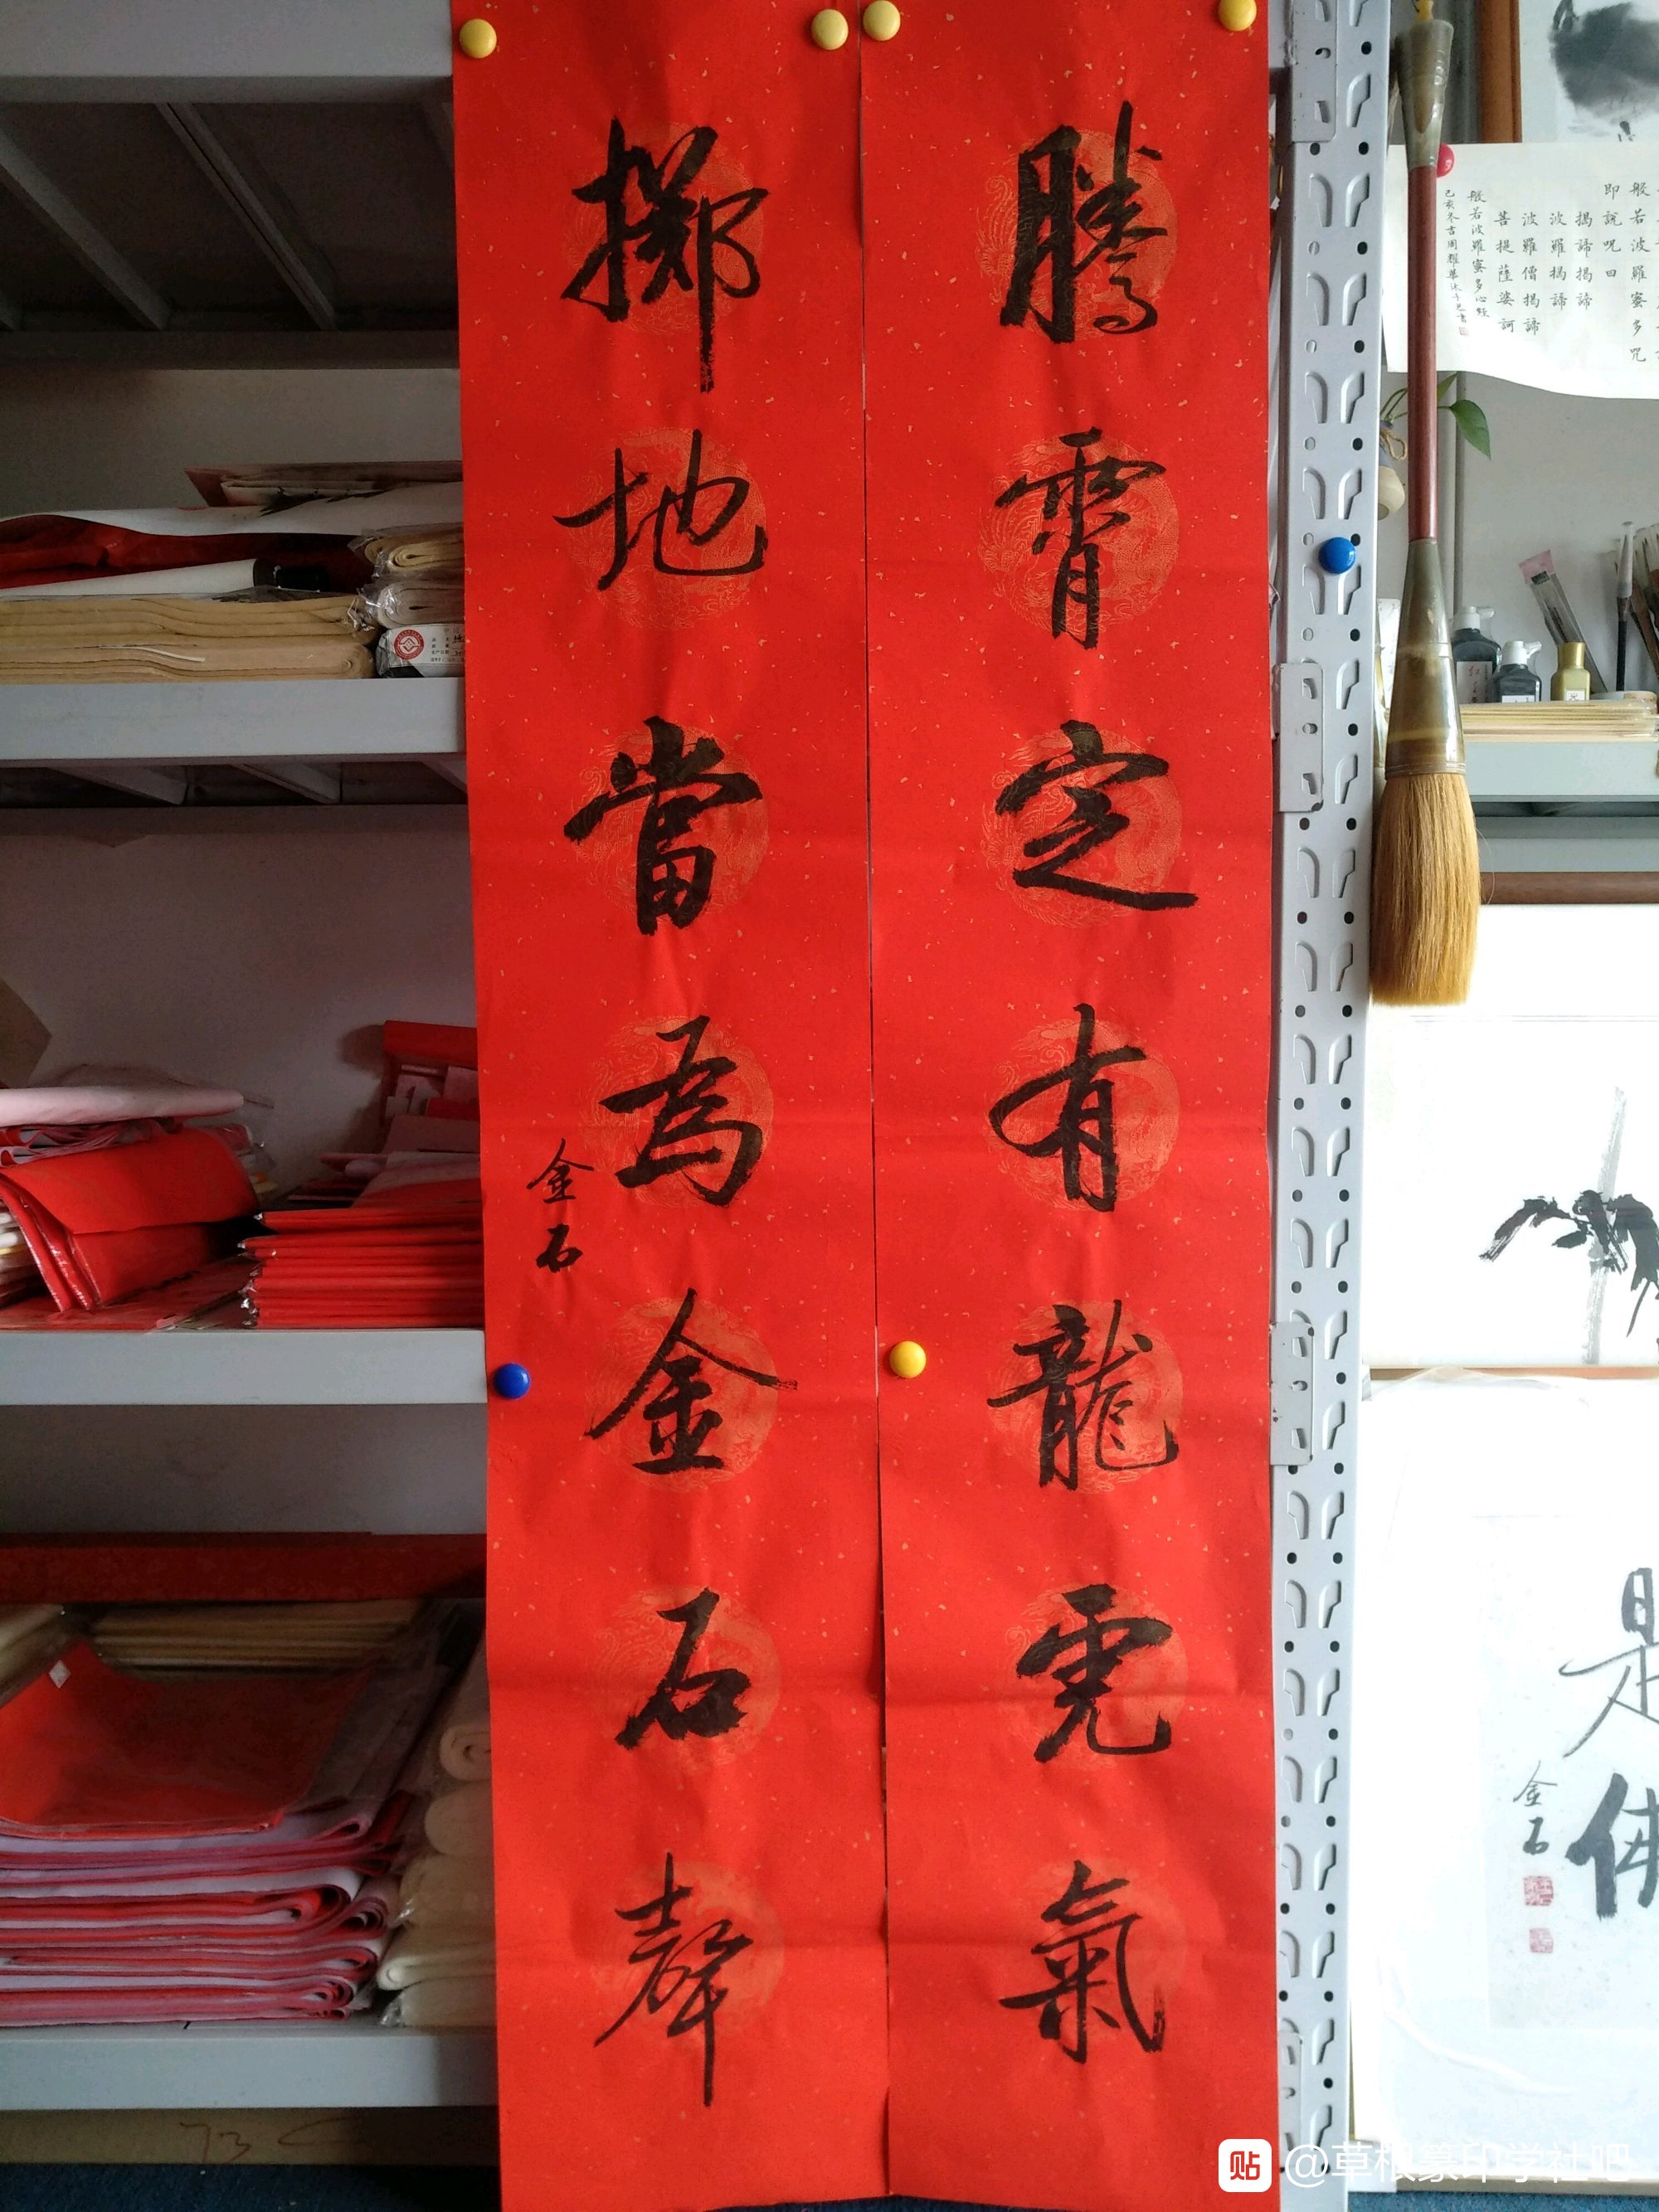 騰霄定有龍虎氣
擲地當為金石聲
金石
般若波羅蜜多咒
即說咒曰
揭諦揭諦
波羅揭諦
波羅僧揭諦
菩提薩婆訶
般若波羅蜜多心經
是佛
金石
貼 @草根篆印学社吧